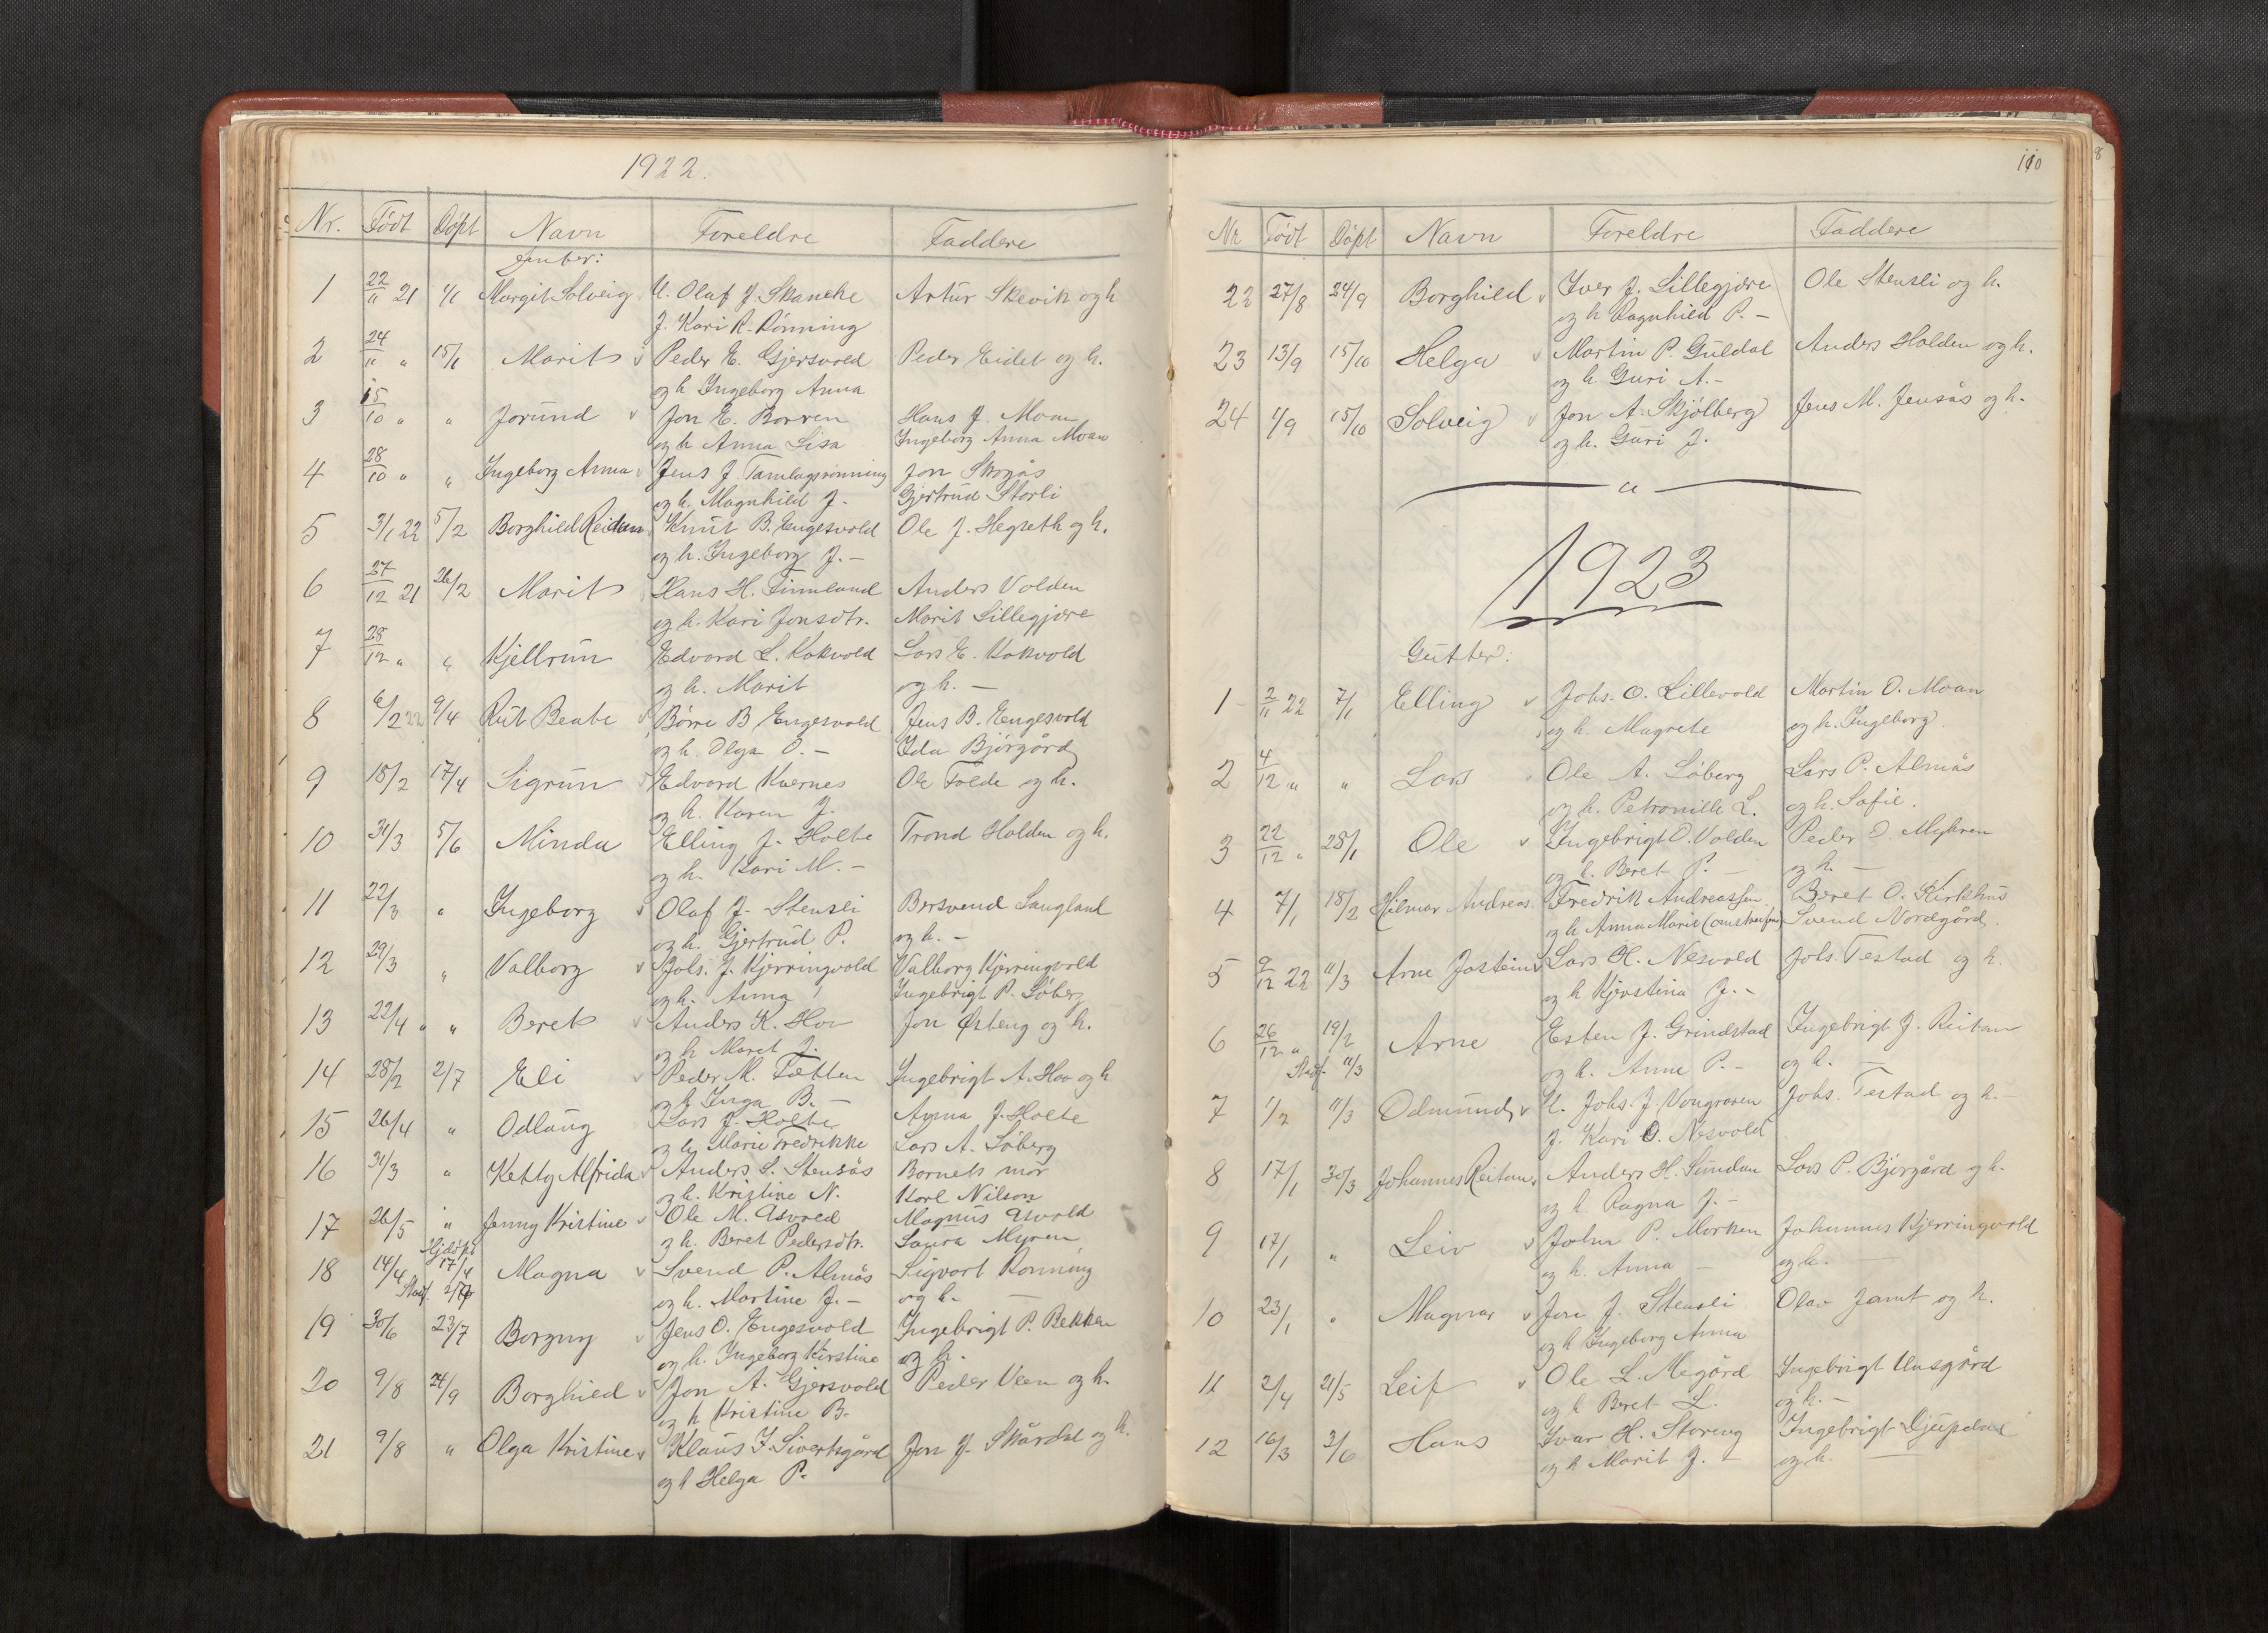 1922.
Nr. Født Døpt Navn Foreldre Faddere
Jenter:
1 22/11 21 1/1 Margit Solveig U. Olaf J. Skancke Artur Skevik og h.
J. Kari R. Rønning
2 24/11 " 15/1 Marit Peder E. Gjersvold Peder Eidet og h.
og h Ingeborg Anna
3 15/10 " " Jorund Jon E. Borren Hans J. Moan
og h Anna Lisa Ingeborg Anna Moan
4 28/10 " " Ingeborg Anna Jens J Tamlagsrønning Jon Skogås
og h. Magnhild J. Gjertrud Storli
5 3/1 22 5/2 Borghild Reidun Knut B. Engesvold Ole J. Hegseth og h.
og h. Ingeborg J. -
6 27/12 21 26/2 Marit Hans H. Finnland Anders Volden
og h. Kari Jonsdtr. Marit Lillegjære
7 28/12 " " Kjellrun Edvard L. Kokvold Lars E. Kokvold
og h. Marit og h. -
8 6/2 22 9/4 Rut Beate Børre B Engesvold Jens B. Engesvold
og h. Olga O. - Ida Bjørgård
9 18/2 17/4 Sigrun Edvard Kvernes Ole Folde og h.
og h. Karen J.
10 31/3 5/6 Minda Elling J. Holte Trond Holden og h.
og h. Kari M. -
11 22/3 " Ingeborg Olaf J. Stensli Bersvend Langland
og h. Gjertrud P. og h. -
12 29/3 " Valborg Johs. J. Kjerringvold Valborg Kjerringvold
og h. Anna Ingebrigt P. Løberg
13 22/4 " " Beret Anders K. Hov Jon Østeng og h.
og h Maret J.
14 28/2 2/7 Eli Peder M. Tætten Ingebrigt A. Hov og h
og h Inga B. -
15 26/4 " Odlaug Lars J. Holte Anna J. Holte
og h Marie Fredrikke Lars A. Løberg
16 31/3 " Ketty Alfrida Anders L. Stensås Barnets mor
og h. Kristine N. Karl Nilson
17 26/5 " Jenny Kristine Ole M. Asvold Magnus Asvold
og h. Beret Pedersdtr. Laura Myren
Hjdøpt
18 14/4 17/4 Magna Svend P. Almås Sigvart Rønning
Stadf. 2/7 og h. Martine J. - og h. -
19 30/6 23/7 Borgny Jens O. Engesvold Ingebrigt P. Bekken
og h. Ingeborg Kirstine og h.
20 9/8 24/9 Borghild Jon A. Gjersvold Peder Veen og h.
og h Kristine B.
21 9/8 " Olga Kristine Klaus J. Sivertsgård Jon J. Skårdal og h.
og h Helga P.
110
Nr Født Døpt Navn Foreldre Faddere
22 27/8 24/9 Borghild Iver J. Lillegjære Ole Stensli og h.
og h Ragnhild P. -
23 13/9 15/10 Helga Martin P. Guldal Anders Holden og h.
og h. Guri A. -
24 1/9 15/10 Solveig Jon A. Skjølberg Jens M. Jensås og h.
og h. Guri J.
1923
Gutter:
1 2/11 22 7/1 Elling Johs. O. Lillevold Martin O. Moan
og h. Magrete og h. Ingeborg.
2 4/12 " " Lars Ole A. Løberg Lars P. Almås
og h. Petronille L. og h. Sofie.
3 22/12 " 28/1 Ole Ingebrigt O. Volden Peder O. Myhren
og h. Beret P. - og h. -
4 7/1 18/2 Hilmar Andreas Fredrik Andreassen Beret O. Kirkhus
og h Anna Marie Svend Nordgård.
5 9/12 22 11/3 Arne Jostein Lars H. Nesvold Johs. Testad og h.
og h Kjerstina J. -
6 26/12 " 19/2 Arne Esten J. Grindstad Ingebrigt J. Reitan
Stadf. 11/3 og h. Anne P. - og h. -
7 1/2 11/3 Odmund U. Johs. J. Vongraven Johs. Testad og h. -
J. Kari O. Nesvold
8 17/1 30/3 Johannes Reitan Anders H. Sundan Lars P. Bjørgård og h.
og h Ragna J. -
9 17/1 " Leiv John P. Morken Johannes Kjerringvold
og h. Anna - og h. -
10 23/1 " Magnar Jon J. Stensli Olav Jamt og h.
og h Ingeborg Anna
11 2/4 21/5 Leif Ole L. Megård Ingebrigt Unsgård
og h Beret L. og h. -
12 16/3 3/6 Hans Ivar H. Storeng Ingebrigt Djupdal
og h Marit J. - og h. -